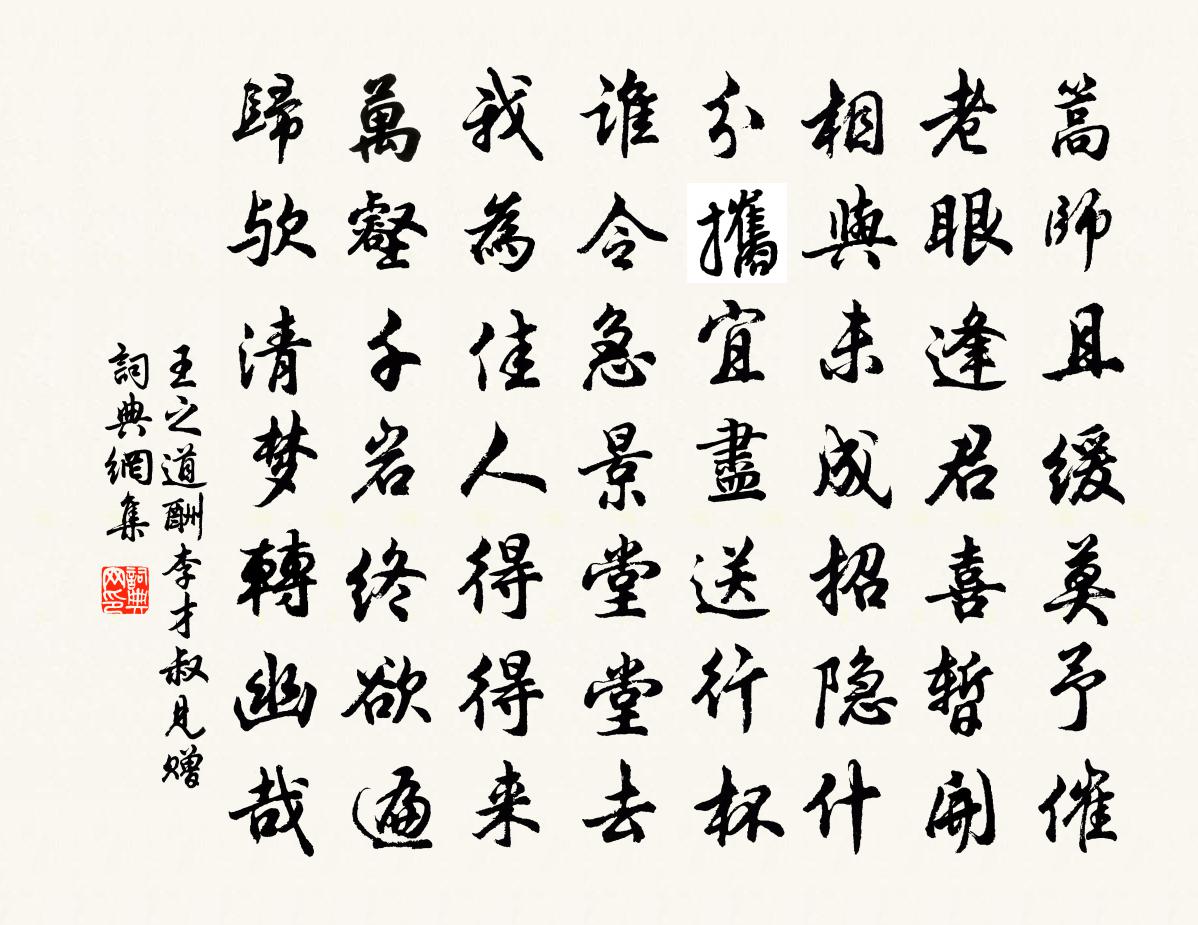 篙師且緩莫予催
老眼逢君喜暫開
相與未成招隐什
分攜宜盡送行杯
谁令急景堂堂去
我為佳人得得来
萬壑千岩终欲遍
歸欤清梦轉幽哉
王之道酬李才叔見赠
詞典網集
詞典网印